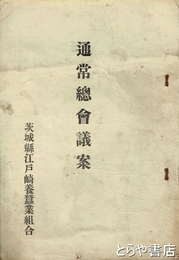 通常總會議案
茨城縣江戸崎養蠶業組合
とらや書店